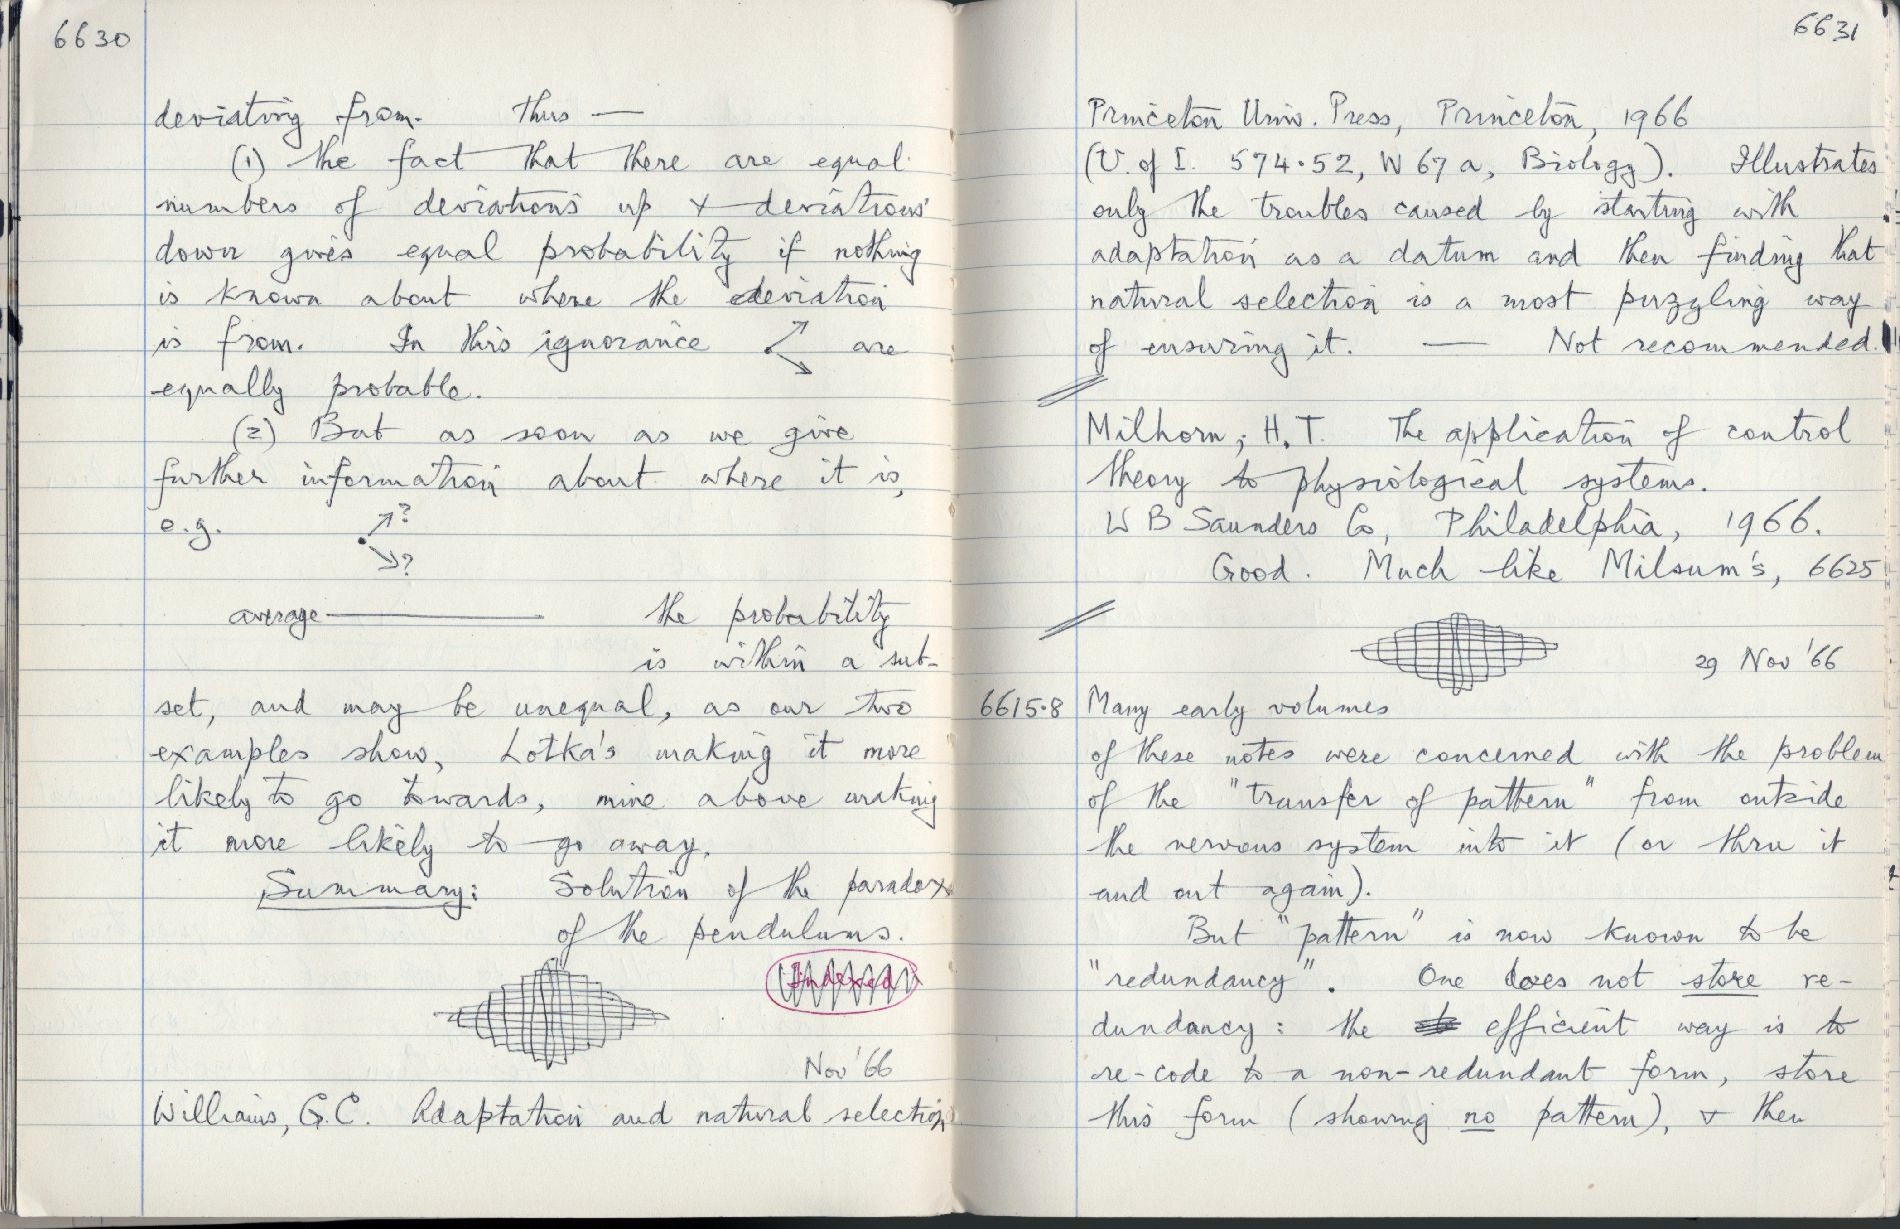 6630
deviating from. Thus —
(1) the fact that there are equal
numbers of deviations up & deviations
down gives equal probability if nothing
is known about where the deviation
is from. In this ignorance are
equally probable.
(2) But as soon as we give
further information about where it is,
e.g. ?
?
average the probability
is within a sub-
set, and may be unequal, as our two
examples show, Lotka's making it more
likely to go towards, mine above making
it more likely to go away.
Summary: Solution of the paradox
of the pendulums.
Indexed
Nov '66
Williams, G.C. Adaptation and natural selection
6631
Princeton Univ. Press, Princeton, 1966
(U. of I. 574.52, W 67 a, Biology). Illustrates
only the troubles caused by starting with
adaptation as a datum and then finding that
natural selection is a most puzzling way
of ensuring it. — Not recommended.
Milhorn, H.T. The application of control
theory to physiological systems.
W B Saunders Co, Philadelphia, 1966.
Good. Much like Milsum's, 6625
29 Nov '66
6615.8 Many early volumes
of these notes were concerned with the problem
of the "transfer of pattern" from outside
the nervous system into it (or thru it
and out again).
But "pattern" is now known to be
"redundancy". One does not store re-
dundancy: the efficient way is to
re-code to a non-redundant form, store
this form (showing no pattern), & then